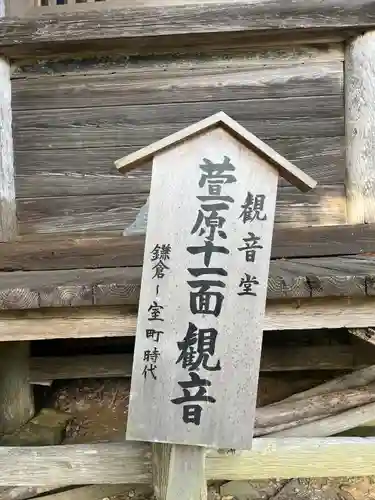 観音堂
萱原十二面観音
鎌倉~室町時代